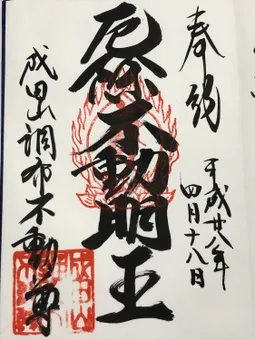 奉納
平成廿八年
四月十八日
厄除不動明王
成田山調布不動尊